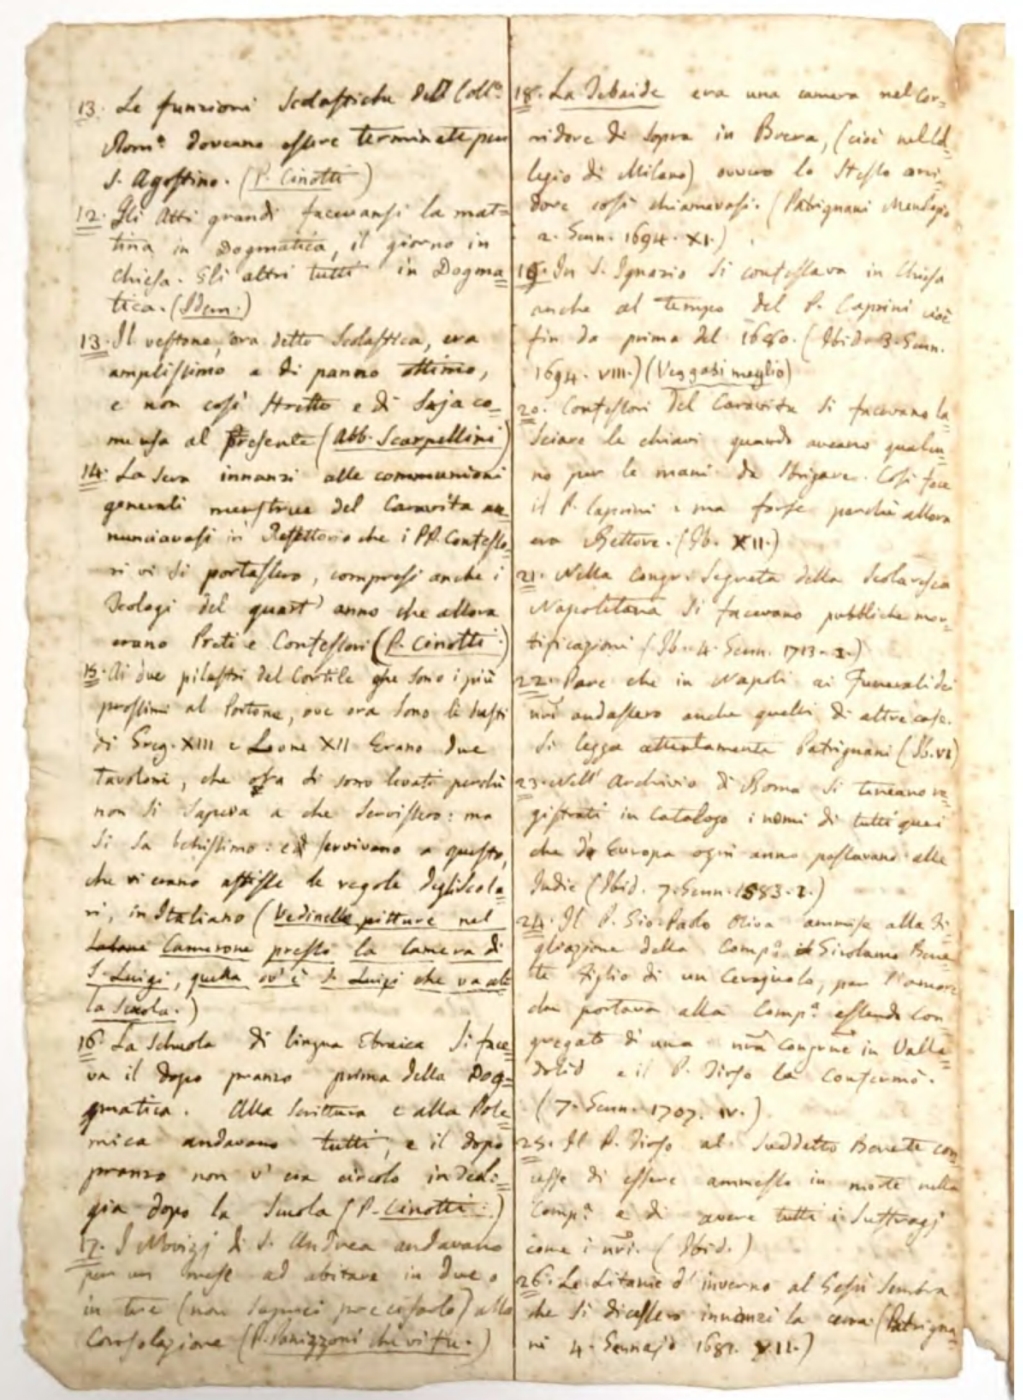 13. Le funzioni Scolastiche dell Coll.o
Rom.o doveano essere terminate per
S. Agostino. (P. Cinotti)
12. Gli Atti grandi facevansi la mat=
tina in Dogmatica, il giorno in
chiesa. Gli altri tutti in Dogma=
tica. (Idem.)
13. Il vestone, ora detto Scolastica, era
amplissimo e di panno ottimo,
e non così stretto e di Saja co=
me usa al presente (Abb. Scarpellini)
14. La sera innanzi alle communioni
generali menstrue del Caravita an=
nunciavasi in Refettorio che i PP. Confesso=
ri vi si portassero, compresi anche i
Teologi del quart' anno che allora
erano Preti e Confessori (P. Cinotti)
15. Ai due pilastri del Cortile che sono i più
prossimi al Portone, ove ora sono li busti
di Greg. XIII e Leone XII Erano due
tavoloni, che ora si sono levati perchè
non si sapeva a che servissero: ma
si sa benissimo: ed servivano a questo,
che vi erano affisse le regole degli Scola=
ri, in Italiano (Vedi nelle pitture nel
Camerone presso la Camera di
S. Luigi, quella ov' è S. Luigi che va al=
la Scuola.)
16. La Schuola di lingua Ebraica si face=
va il dopo pranzo prima della Dog=
gmatica. Alla Scrittura e alla Pole=
mica andavano tutti, e il dopo
pranzo non v' era circolo in
dopo la Scuola (P. Cinotti.)
17. I Novizj di S. Andrea andavano
per un mese ad abitare in due o
in tre (non saprei precisarlo) alla
Consolazione (P. Panizzoni che vi fu.)
18. La Tebaide era una camera nel Cor=
ridore di sopra in Brera, (cioè nel Col=
legio di Milano) ovvero lo stesso corri=
dore così chiamavasi. (Patrignani Menologio
2. Genn. 1694. XI.)
19. In S. Ignazio si confessava in Chiesa
anche al tempo del P. Caprini cioè
fin da prima del 1680. (Ibid. 3. Genn.
1694. VIII.) (Veggasi meglio)
20. Confessori del Caravita si facevano la=
sciare le chiavi quando aveano qualcu=
no per le mani da sbrigare. Così fece
il P. Caprini e ma forse perchè allora
era Rettore. (Ib. XII.)
21. Nella Congr. Segreta della Scolaresca
Napoletana si facevano pubbliche mor=
tificazioni (Ib. 4. Genn. 1713. 2.)
22. Pare che in Napoli ai Funerali dei
nri andassero anche quelli di altre case.
Si legga attentamente Patrignani (Ib. VI)
23. Nell' Archivio di Roma si teneano re=
gistrati in Catalogo i nomi di tutti quei
che da Europa ogni anno passavano alle
Indie (Ibid. 7. Genn. 1583. 2.)
24. Il P. Gio. Paolo Oliva ammise alla
della Comp.a Girolamo
figlio di un Cerajuolo, per l'amore
che portava alla Comp.a essendo con=
gregato di una nra Congrne in Valla=
dolid e il P. Tirso la confermò.
(7. Genn. 1707. IV.)
25. Il P. Tirso al suddetto con=
cesse di essere ammesso in morte nella
Comp.a e di avere tutti i Suffragj
come i nri. (Ibid.)
26. Le Litanie d' inverno al Gesù sembra
che si dicessero innanzi la cena (Patrigna=
ni 4. Gennajo 1687. XII.)